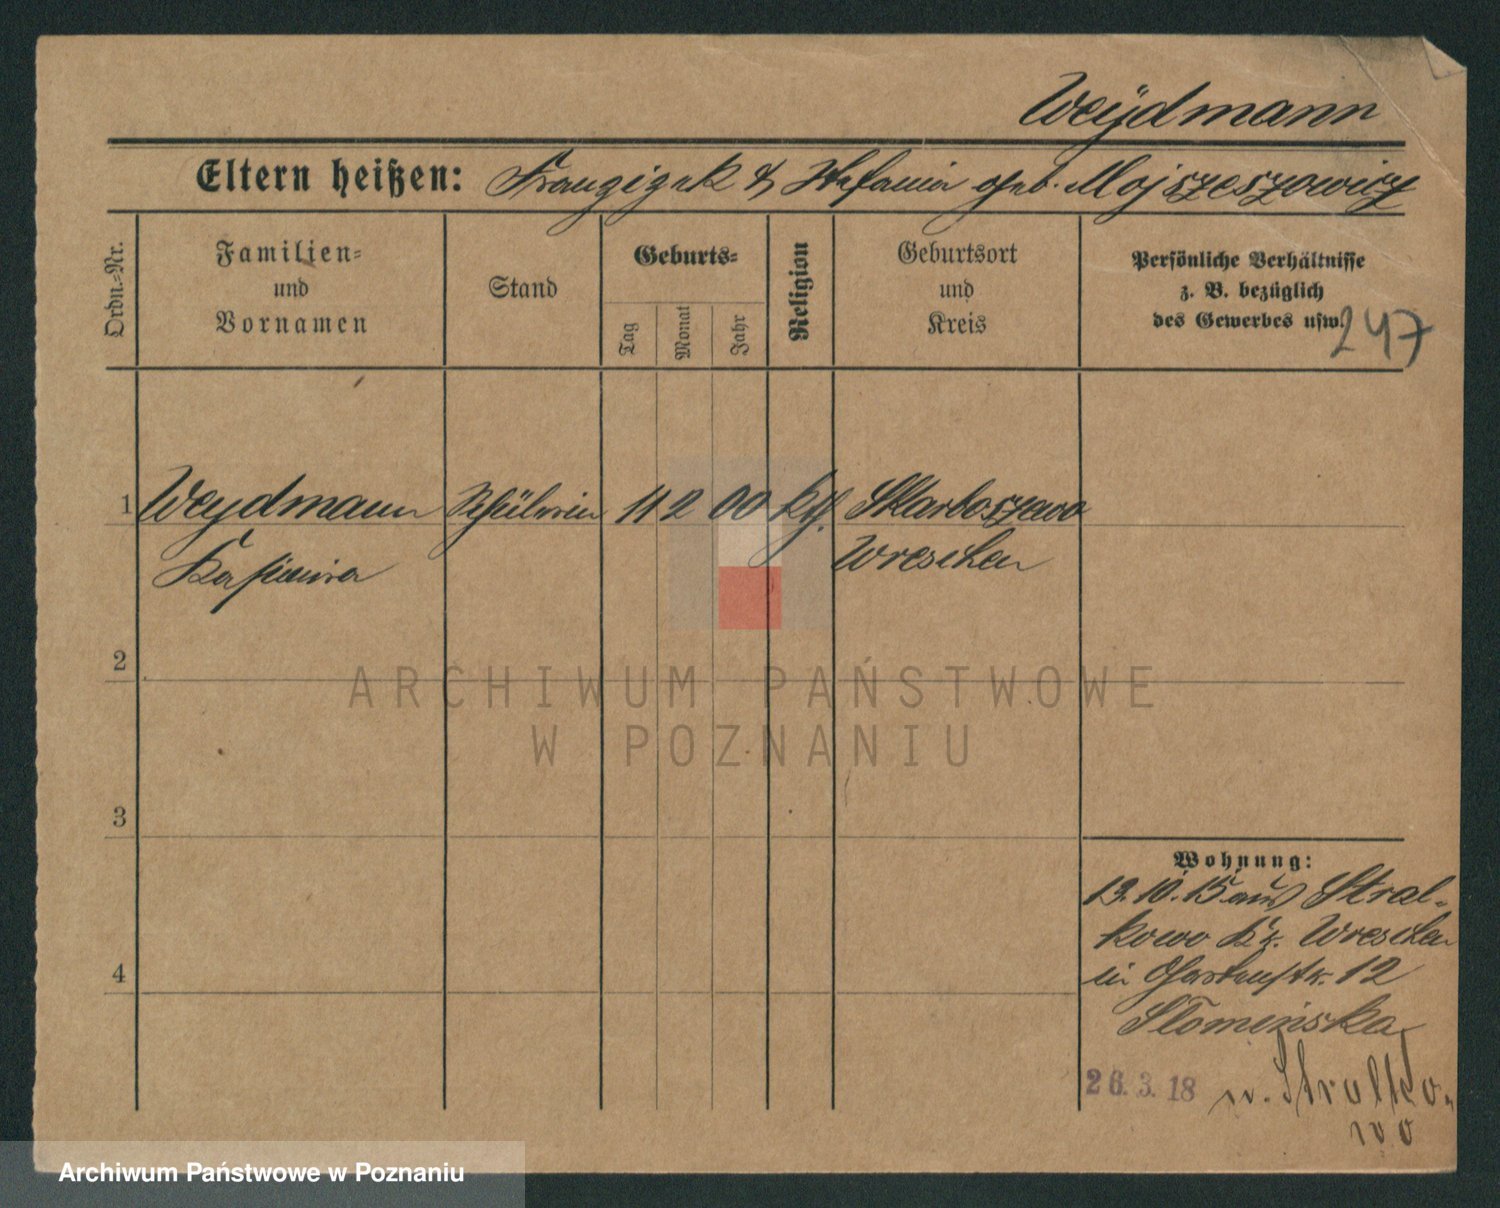 Weÿdmann
Eltern heißen: Franzizek & Stefania geb. Mojszeszowicz
Ordn.-Nr.
Familien-
und
Vornamen
Stand
Geburts-
Tag
Monat
Jahr
Religion
Geburtsort
und
Kreis
Persönliche Verhältnisse
z. B. bezüglich
des Gewerbes usw.
247
1 Weydmann Schülerin 11 2 00 kth. Skarboszewo
Kasimira Wreschen
2
ARCHIWUM PAŃSTWOWE
W POZNANIU
3
Wohnung:
19.10.15 aus Stral-
kowo Kr. Wreschen
4
in Gartenstr. 12
Słomińska
26.3.18 n. Stralko-
wo
Archiwum Państwowe w Poznaniu